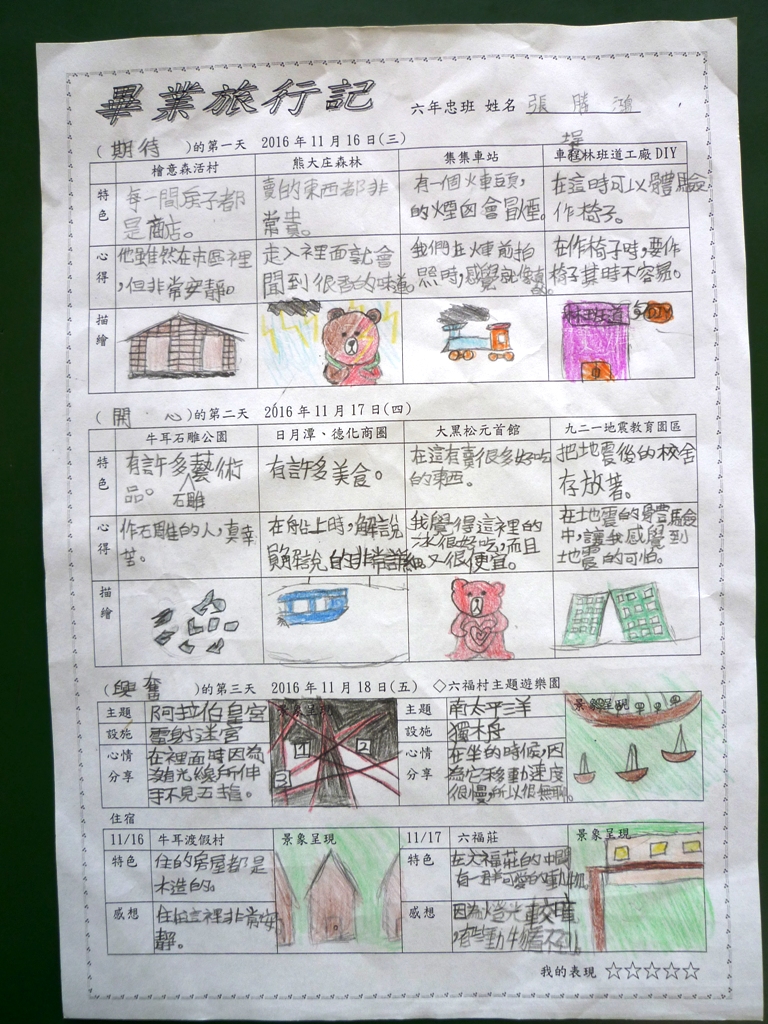 畢業旅行記
六年忠班 姓名 張勝鴻
(期待)的第一天 2016年11月16日(三)
檜意森活村 熊大庄森林 集集車站 車埕林班道工廠DIY
特色
每一間房子都
是商店。
賣的東西都非
常貴。
有一個火車頭,
的煙囪會冒煙。
在這時可以體驗
作椅子。
心得
他雖然在市區裡
,但非常安靜。
走入裡面就會
聞到很香的味道。
我們在火車前拍
照時,感覺就像
在作椅子時,要作
椅子其時不容易。
描繪
林班道
DIY
(開心)的第二天 2016年11月17日(四)
牛耳石雕公園 日月潭、德化商圈 大黑松元首館 九二一地震教育園區
特色
有許多藝術
品。石雕
有許多美食。
在這有賣很多好吃
的東西。
把地震後的校舍
存放著。
心得
作石雕的人,真辛
苦。
在船上時,解說
員解說的非常詳細
我覺得這裡的
冰很好吃,而且
又很便宜。
在地震的體驗
中,讓我感覺到
地震的可怕。
描繪
(興奮)的第三天 2016年11月18日(五) ◇六福村主題遊樂園
主題 阿拉伯皇宮
設施 雷射迷宮
心情分享
在裡面時因為
激光線所伸
手不見五指。
景象呈現
1
2
3
主題 南太平洋
設施 獨木舟
心情分享
在坐的時候,因
為它移動速度
很慢,所以很無聊。
景象呈現
住宿
11/16 牛耳渡假村 景象呈現
特色
住的房屋都是
木造的。
感想
住在這裡非常安
靜。
11/17 六福莊 景象呈現
特色
在六福莊的中間
有一群可愛的動物
感想
因為燈光較暗
我的表現 ☆☆☆☆☆